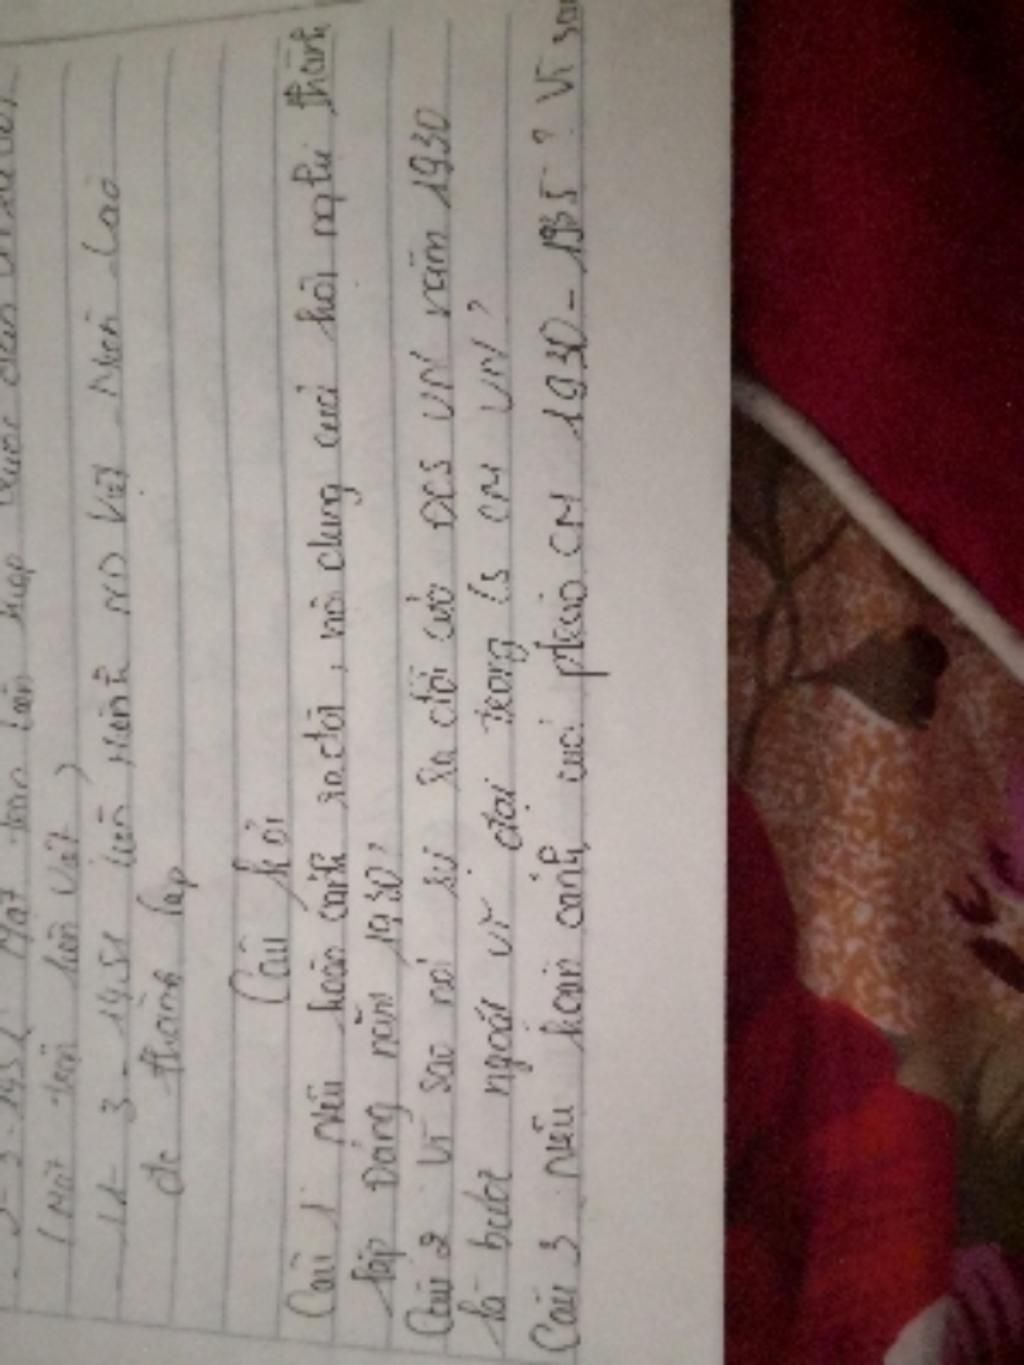 (Mặt trận liên việt)
11-3-1951 liên Minh ND Việt-Miên-Lào
đc thành lập
Câu hỏi
Câu 1 Nêu hoàn cảnh ra đời, nội dung cuả hội nghị thành
lập Đảng năm 1930?
Câu 2 Vì sao nói sự ra đời của ĐCS VN năm 1930
là bước ngoặt vĩ đại trong ls CM VN?
Câu 3 Nêu hoàn cảnh cuả phtrào CM 1930-1935? Vì sao